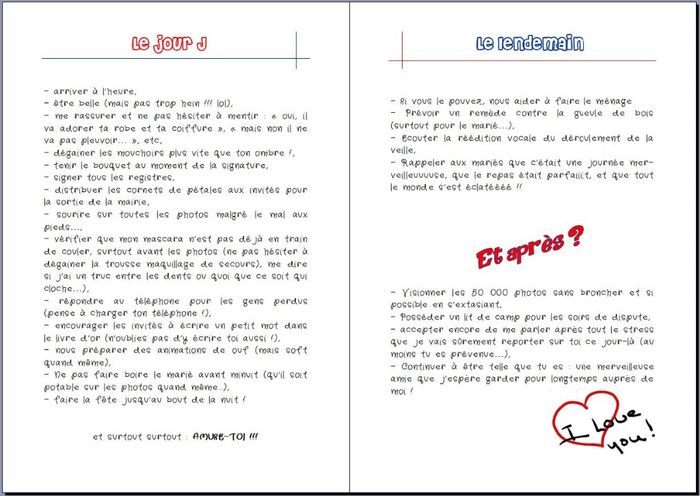 Le jour J
- arriver à l'heure,
- être belle (mais pas trop hein !!! lol),
- me rassurer et ne pas hésiter à mentir : « oui, il
va adorer ta robe et ta coiffure », « mais non il ne
va pas pleuvoir... », etc,
- dégainer les mouchoirs plus vite que ton ombre !,
- tenir le bouquet au moment de la signature,
- signer tous les registres,
- distribuer les cornets de pétales aux invités pour
la sortie de la mairie,
- sourire sur toutes les photos malgré le mal aux
pieds...,
- vérifier que mon mascara n'est pas déjà en train
de couler, surtout avant les photos (ne pas hésiter à
dégainer la trousse maquillage de secours), me dire
si j'ai un truc entre les dents ou quoi que ce soit qui
cloche...),
- répondre au téléphone pour les gens perdus
(pense à charger ton téléphone !),
- encourager les invités à écrire un petit mot dans
le livre d'or (n'oublies pas d'y écrire toi aussi !),
- nous préparer des animations de ouf (mais soft
quand même),
- Ne pas faire boire le marié avant minuit (qu'il soit
potable sur les photos quand même..),
- faire la fête jusqu'au bout de la nuit !
et surtout surtout : AMUSE-TOI !!!
Le lendemain
- Si vous le pouvez, nous aider à faire le ménage
- Prévoir un remède contre la gueule de bois
(surtout pour le marié...),
- Ecouter la réédition vocale du déroulement de la
veille,
- Rappeler aux mariés que c'était une journée mer-
veilleuuuuse, que le repas était parfaiiiit, et que tout
le monde s'est éclatéééé !!
Et après ?
- Visionner les 50 000 photos sans broncher et si
possible en s'extasiant,
- Posséder un lit de camp pour les soirs de dispute,
- accepter encore de me parler après tout le stress
que je vais sûrement reporter sur toi ce jour-là (au
moins tu es prévenue...),
- Continuer à être telle que tu es : une merveilleuse
amie que j'espère garder pour longtemps auprès de
moi !
I Love
you!